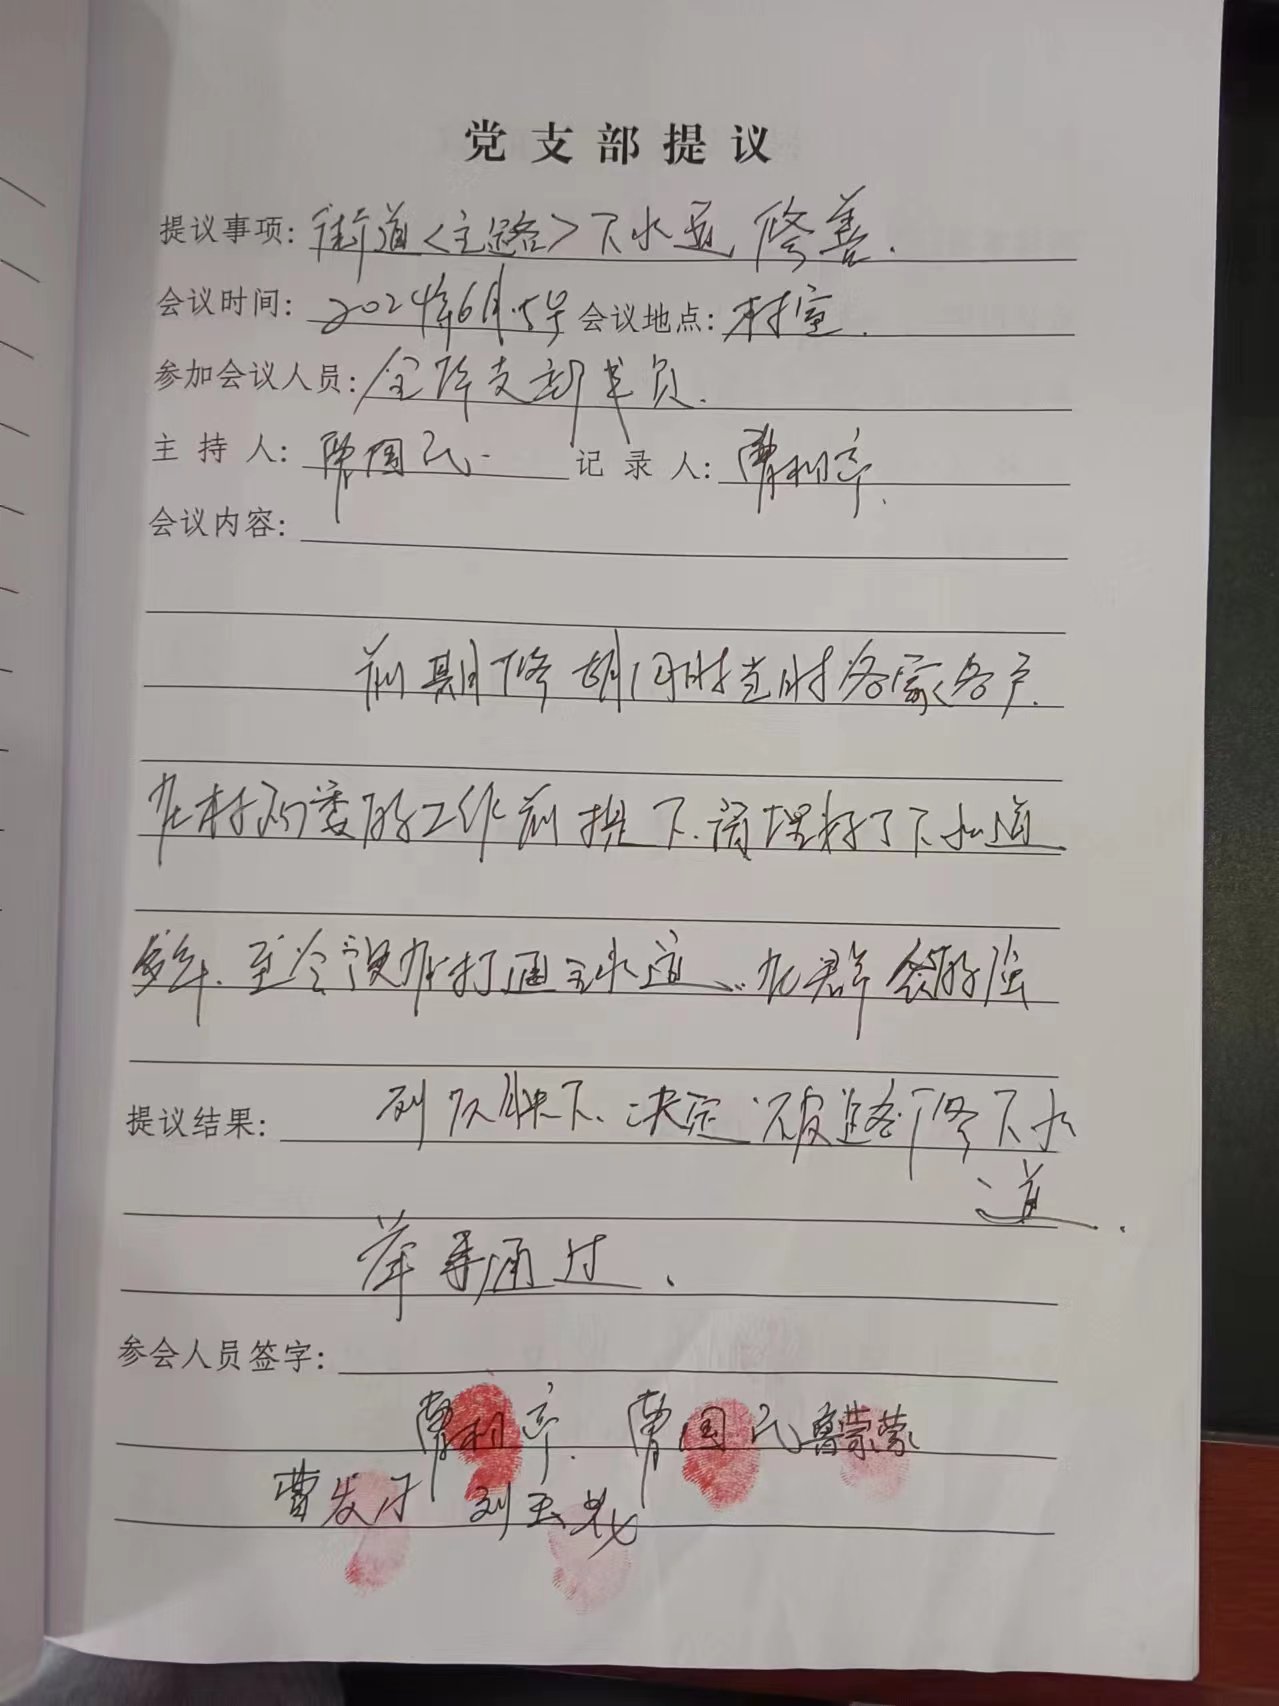 党支部提议
提议事项: 街道<主路>下水道修善.
会议时间: 2024年6月5号 会议地点: 村室.
参加会议人员: 全体支部党员.
主持人: 曹国民. 记录人: 曹利亭.
会议内容:
前期修胡同时当时各家各户.
在村两委的工作前提下.预埋好了下水道
多年.至今没有打通主水道..在群众的强
提议结果: 烈反映下、决定破路修下水
道.
举手通过.
参会人员签字:
曹利亭. 曹国民 鲁蒙蒙
曹发才 刘玉